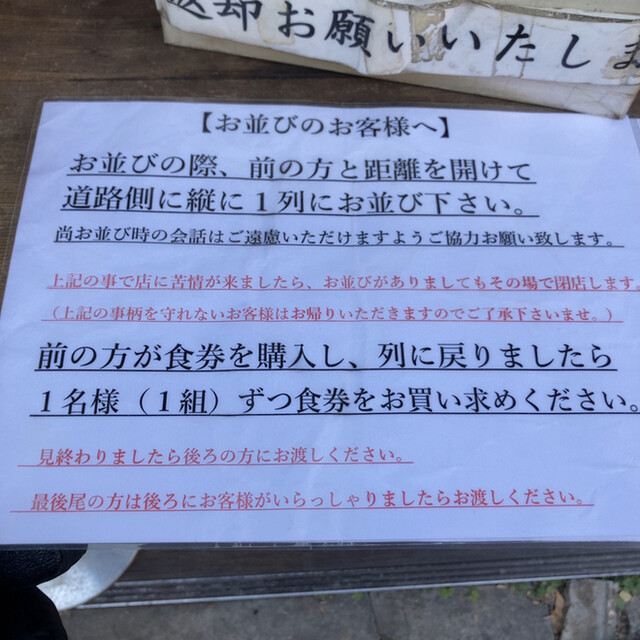 返却お願いいたしま
【お並びのお客様へ】
お並びの際、前の方と距離を開けて
道路側に縦に１列にお並び下さい。
尚お並び時の会話はご遠慮いただけますようご協力お願い致します。
上記の事で店に苦情が来ましたら、お並びがありましてもその場で閉店します。
（上記の事柄を守れないお客様はお帰りいただきますのでご了承下さいませ。）
前の方が食券を購入し、列に戻りましたら
１名様（１組）ずつ食券をお買い求めください。
見終わりましたら後ろの方にお渡しください。
最後尾の方は後ろにお客様がいらっしゃりましたらお渡しください。